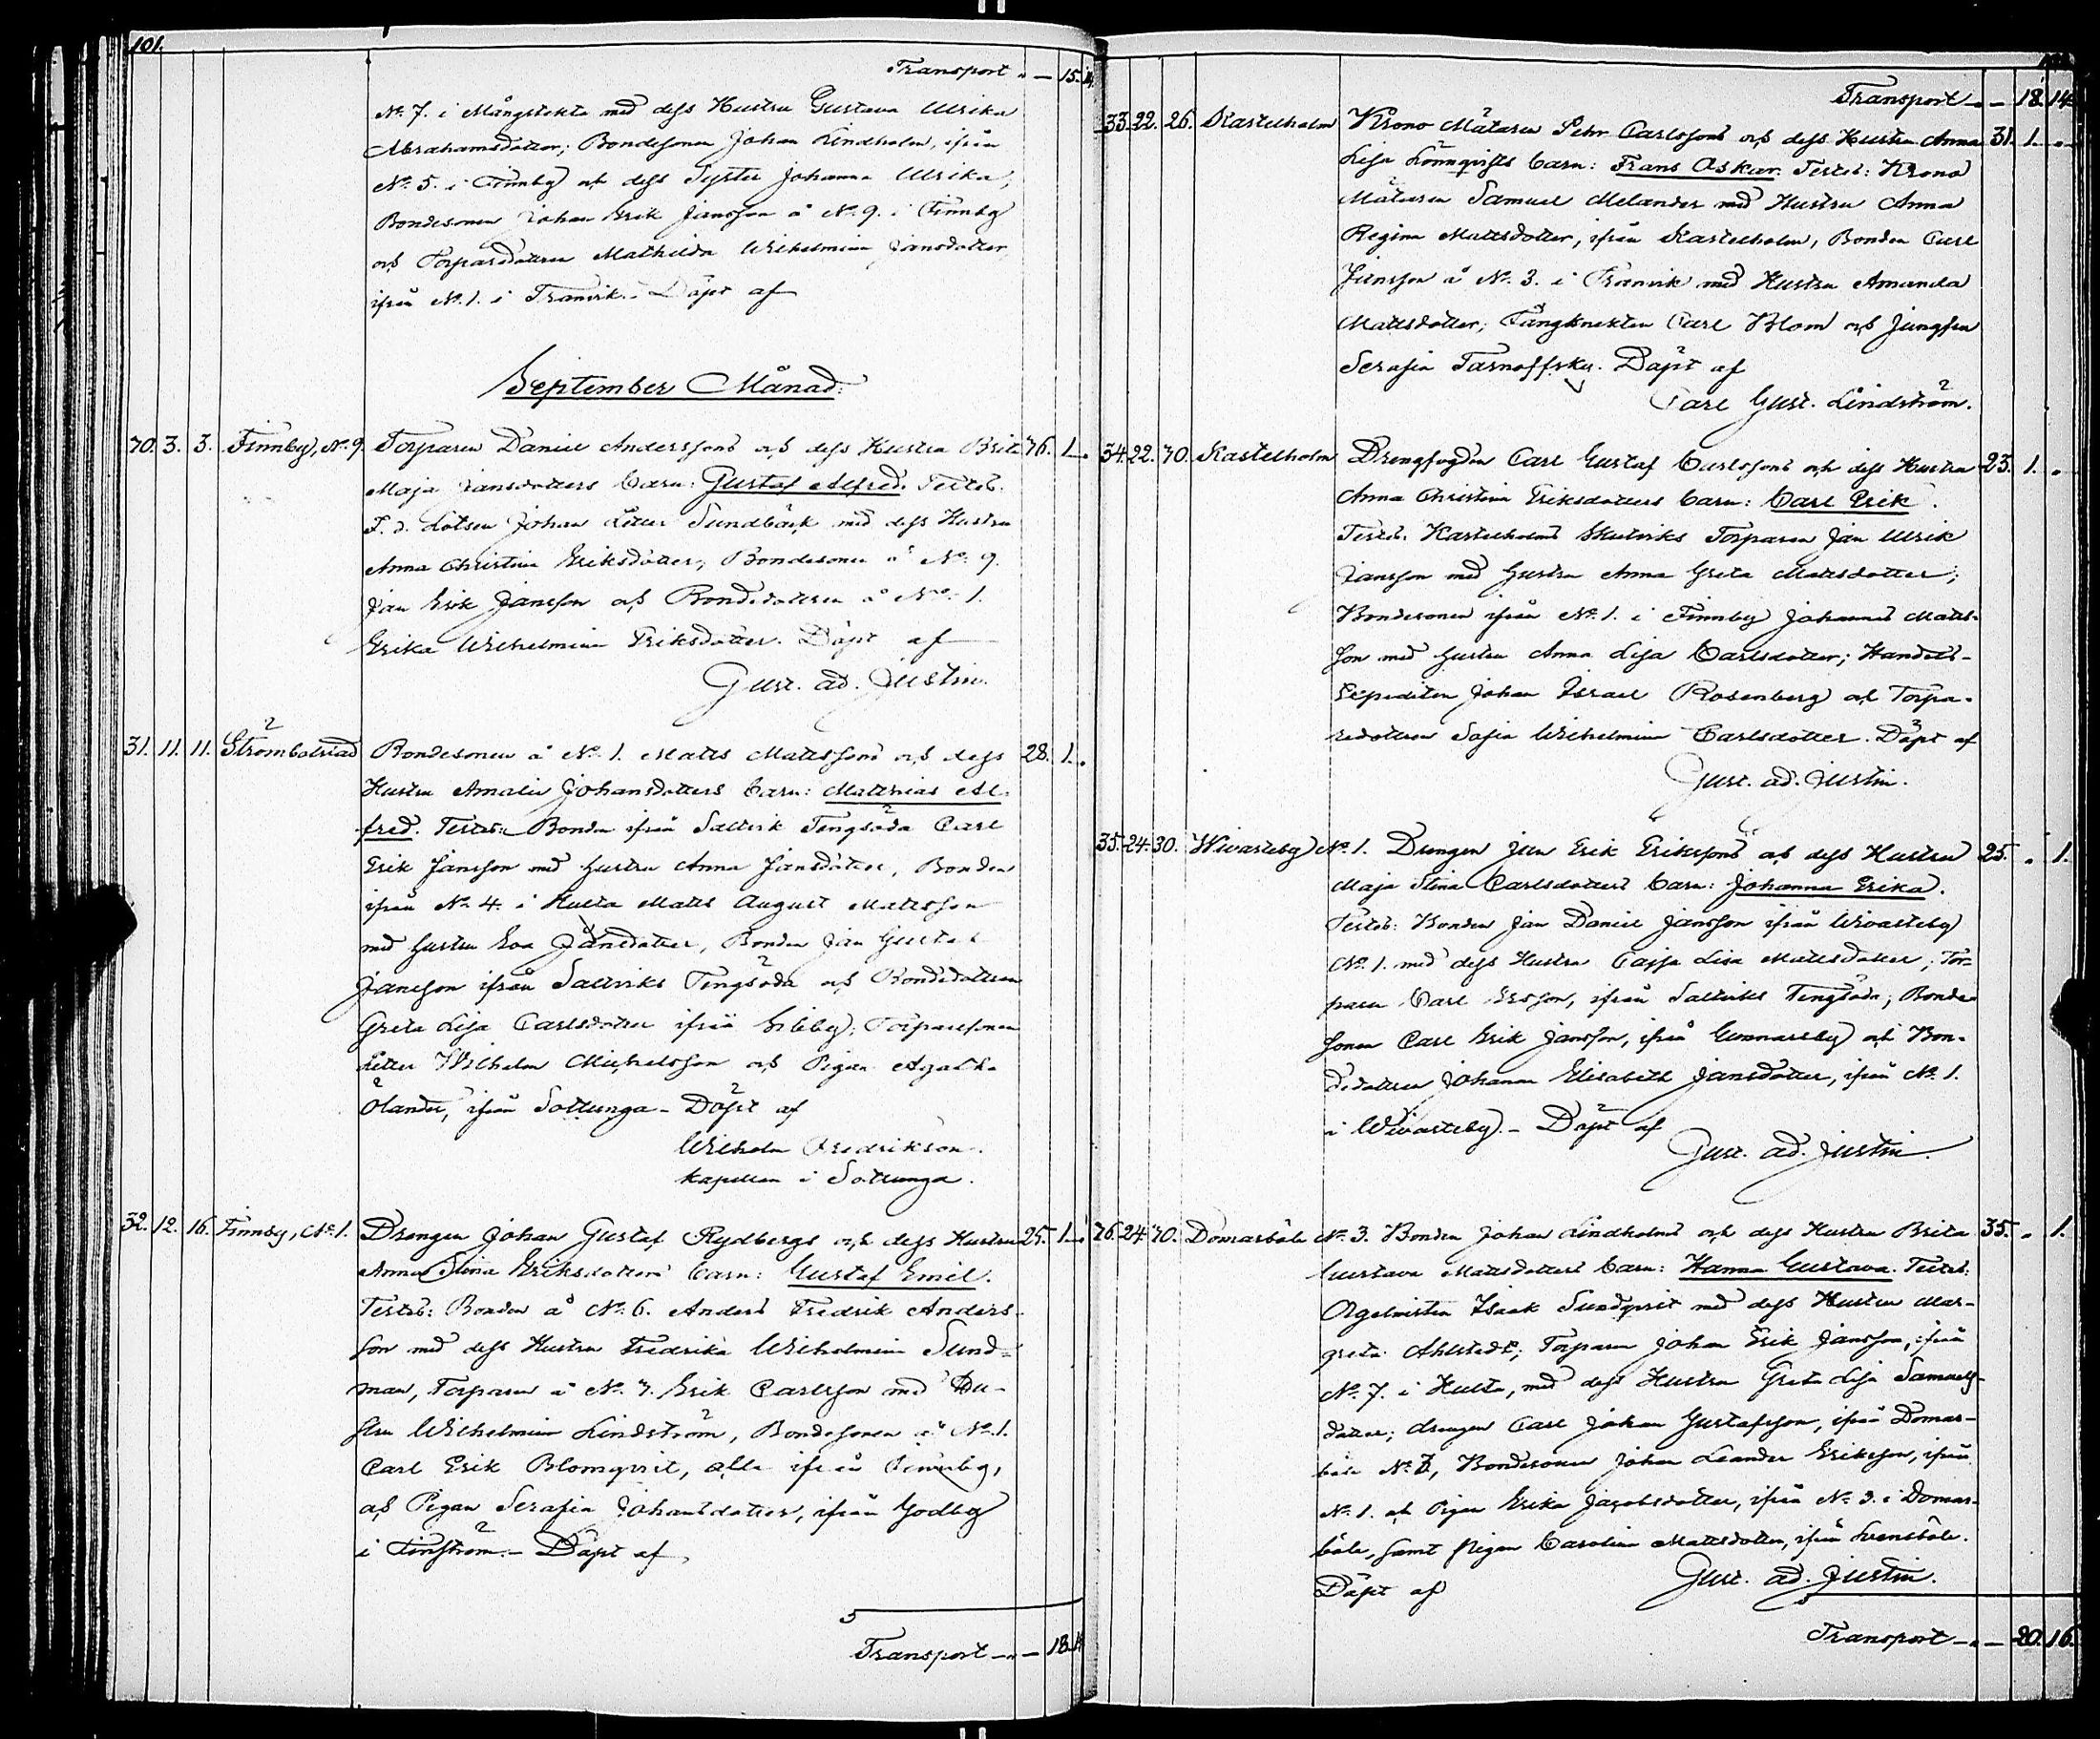 101.
Transport — 15. 14
No. 7. i Mångstekta med dess Hustru Gustava Ulrika
Abrahamsdotter; Bondesonen Johan Lindholm, ifrån
No. 5. i Finnby och dess Syster Johanna Ulrika,
Bondesonen Johan Erik Jansson å No. 9. i Finnby
och Torparedottren Mathilda Wilhelmina Jansdotter,
ifrån No. 1. i Tranvik. - Döpt af
September Månad:
30. 3. 3. Finnby, No. 9. Torparen Daniel Anderssons och dess Hustru Brita 36. 1. "
Maja Jansdotters barn: Gustaf Alfred. Testes.
F. d. Lotsen Johan Petter Sundbäck med dess Hustru
Anna Christina Eriksdotter; Bondesonen å No. 9.
Jan Erik Jansson och Bondedottren å No. 1.
Erika Wilhelmina Eriksdotter. Döpt af
Gust. Ad. Justin.
31. 11. 11. Strömbolstad Bondesonen å No. 1. Matts Mattssons och dess 28. 1. "
Hustru Amalia Johansdotters barn: Matthias Al-
fred. Testes: Bonden ifrån Saltvik Tengsöda Carl
Erik Jansson med hustru Anna Jansdotter, Bonden
ifrån No. 4. i Hulta Matts August Mattsson
med hustru Eva Jansdotter, Bonden Jan Gustaf
Jansson ifrån Saltviks Tengsöda och Bondedottren
Greta Lisa Carlsdotter ifrån Sibby; Torparesonen
Petter Wilhelm Michelsson och Pigan Agatha
Ölander, ifrån Sottunga - Döpt af
Wilhelm Fredrikson.
kapellan i Sottunga.
32. 12. 16. Finnby, No. 1. Drengen Johan Gustaf Rydbergs och dess Hustru 25. 1. "
Anna Stina Eriksdotters barn: Gustaf Emil.
Testes: Bonden å No. 6. Anders Fredrik Anders-
son med dess Hustru Fredrika Wilhelmina Sund-
man, Torparen å No. 7. Erik Carlsson med Hu-
stru Wilhelmina Lindström, Bondesonen å No. 1.
Carl Erik Blomqvist, alla ifrån Finnby,
och Pigan Serafia Johansdotter, ifrån Godby
i Finström. - Döpt af
Transport — 18. 14
Transport — 18. 14
33. 22. 26. Kastelholm Krono Mätaren Pehr Carlssons och dess Hustru Anna 31. 1. "
Lisa Lönnqvists barn: Frans Oskar. Testes: Krono
Mätaren Samuel Melander med Hustru Anna
Regina Mattsdotter, ifrån Kastelholm, Bonden Carl
Jansson å No. 3. i Tranvik med Hustru Amanda
Mattsdotter; Fångknekten Carl Blom och Jungfru
Serafia Tarnoffsky. Döpt af
Carl Gust. Lindström.
34. 22. 30. Kastelholm Drengfogden Carl Gustaf Carlssons och dess Hustru 23. 1. "
Anna Christina Eriksdotters barn: Carl Erik.
Testes. Kastelholms Slutviks Torparen Jan Ulrik
Jansson med Hustru Anna Greta Mattsdotter;
Bondesonen ifrån No. 1. i Finnby Johannes Matts-
son med hustru Anna Lisa Carlsdotter; Handels-
Expediten Johan Israel Rosenberg och Torpa-
redottren Sofia Wilhelmina Carlsdotter. Döpt af
Gust. Ad. Justin.
35. 24. 30. Wivasteby No. 1. Drengen Jan Erik Erikssons och dess Hustru 25. " 1.
Maja Stina Carlsdotters barn: Johanna Erika.
Testes: Bonden Jan Daniel Jansson ifrån Wivasteby
No. 1. med dess Hustru Cajsa Lisa Mattsdotter; Tor-
paren Carl Ersson, ifrån Saltviks Tengsöda; Bonde-
sonen Carl Erik Jansson, ifrån Gunnarsby och Bon-
dedottren Johanna Elisabeth Jansdotter, ifrån No. 1.
i Wivasteby. - Döpt af
Gust. Ad. Justin.
36. 24. 30. Domarböle No. 3. Bonden Johan Lindholms och dess Hustru Brita 35. " 1.
Gustava Mattsdotters barn: Hanna Gustava. Testes:
Orgelnisten Isaak Sundqvist med dess Hustru Mar-
greta Ahlstedt; Torparen Johan Erik Jansson, ifrån
No. 7. i Hulta, med dess Hustru Greta Lisa Samuels-
dotter; drengen Carl Johan Gustafsson, ifrån Domar-
böle No. 3, Bondesonen Johan Leander Eriksson, ifrån
No. 1. och Pigan Erika Jacobsdotter, ifrån No. 3. i Domar-
böle, samt Pigan Carolina Mattsdotter, ifrån Svensböle.
Döpt af Gust. Ad. Justin.
Transport — 20. 16.